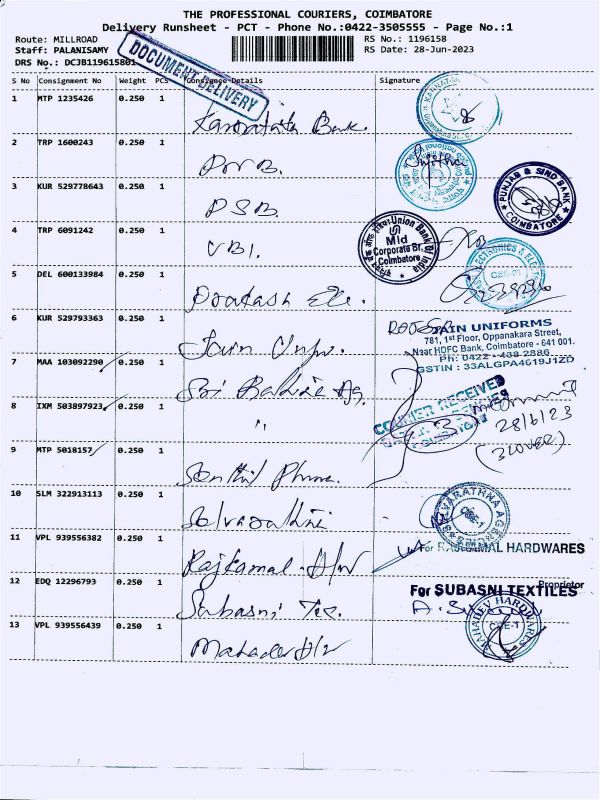 THE PROFESSIONAL COURIERS, COIMBATORE
Delivery Runsheet - PCT - Phone No.:0422-3505555 - Page No.:1
Route: MILLROAD
RS No.: 1196158
Staff: PALANISAMY
RS Date: 28-Jun-2023
DRS No.: DCJB119615801
DOCUMENT DELIVERY
S No Consignment No Weight PCS Consignee Details Signature
1 MTP 1235426 0.250 1 Karnataka Bank.
2 TRP 1600243 0.250 1 PNB.
3 KUR 529778643 0.250 1 PSB.
PUNJAB & SIND BANK
COIMBATORE
4 TRP 6091242 0.250 1 UBI.
Union Bank Of India
Mid
Corporate Br.
Coimbatore
5 DEL 600133984 0.250 1 Prakash Ele.
6 KUR 529793363 0.250 1 Jain Unif.
JAIN UNIFORMS
781, 1st Floor, Oppanakara Street,
Naar HDFC Bank, Coimbatore - 641 001.
Ph: 0422 - 438 2886
GSTIN : 33ALGPA4619J1ZD
7 MAA 103092290 0.250 1 Sri Ag.
8 IXM 503897923 0.250 1 "
COURIER RECEIVED
28/6/23
(3 COVER)
9 MTP 5018157 0.250 1 Senthil
10 SLM 322913113 0.250 1
11 VPL 939556382 0.250 1 Rajkamal H/W
For RAJKAMAL HARDWARES
Proprietor
12 EDQ 12296793 0.250 1 Subasni Tex.
For SUBASNI TEXTILES
13 VPL 939556439 0.250 1 Mahadev H/W
MAHADEV HARDWARES
CBE-1